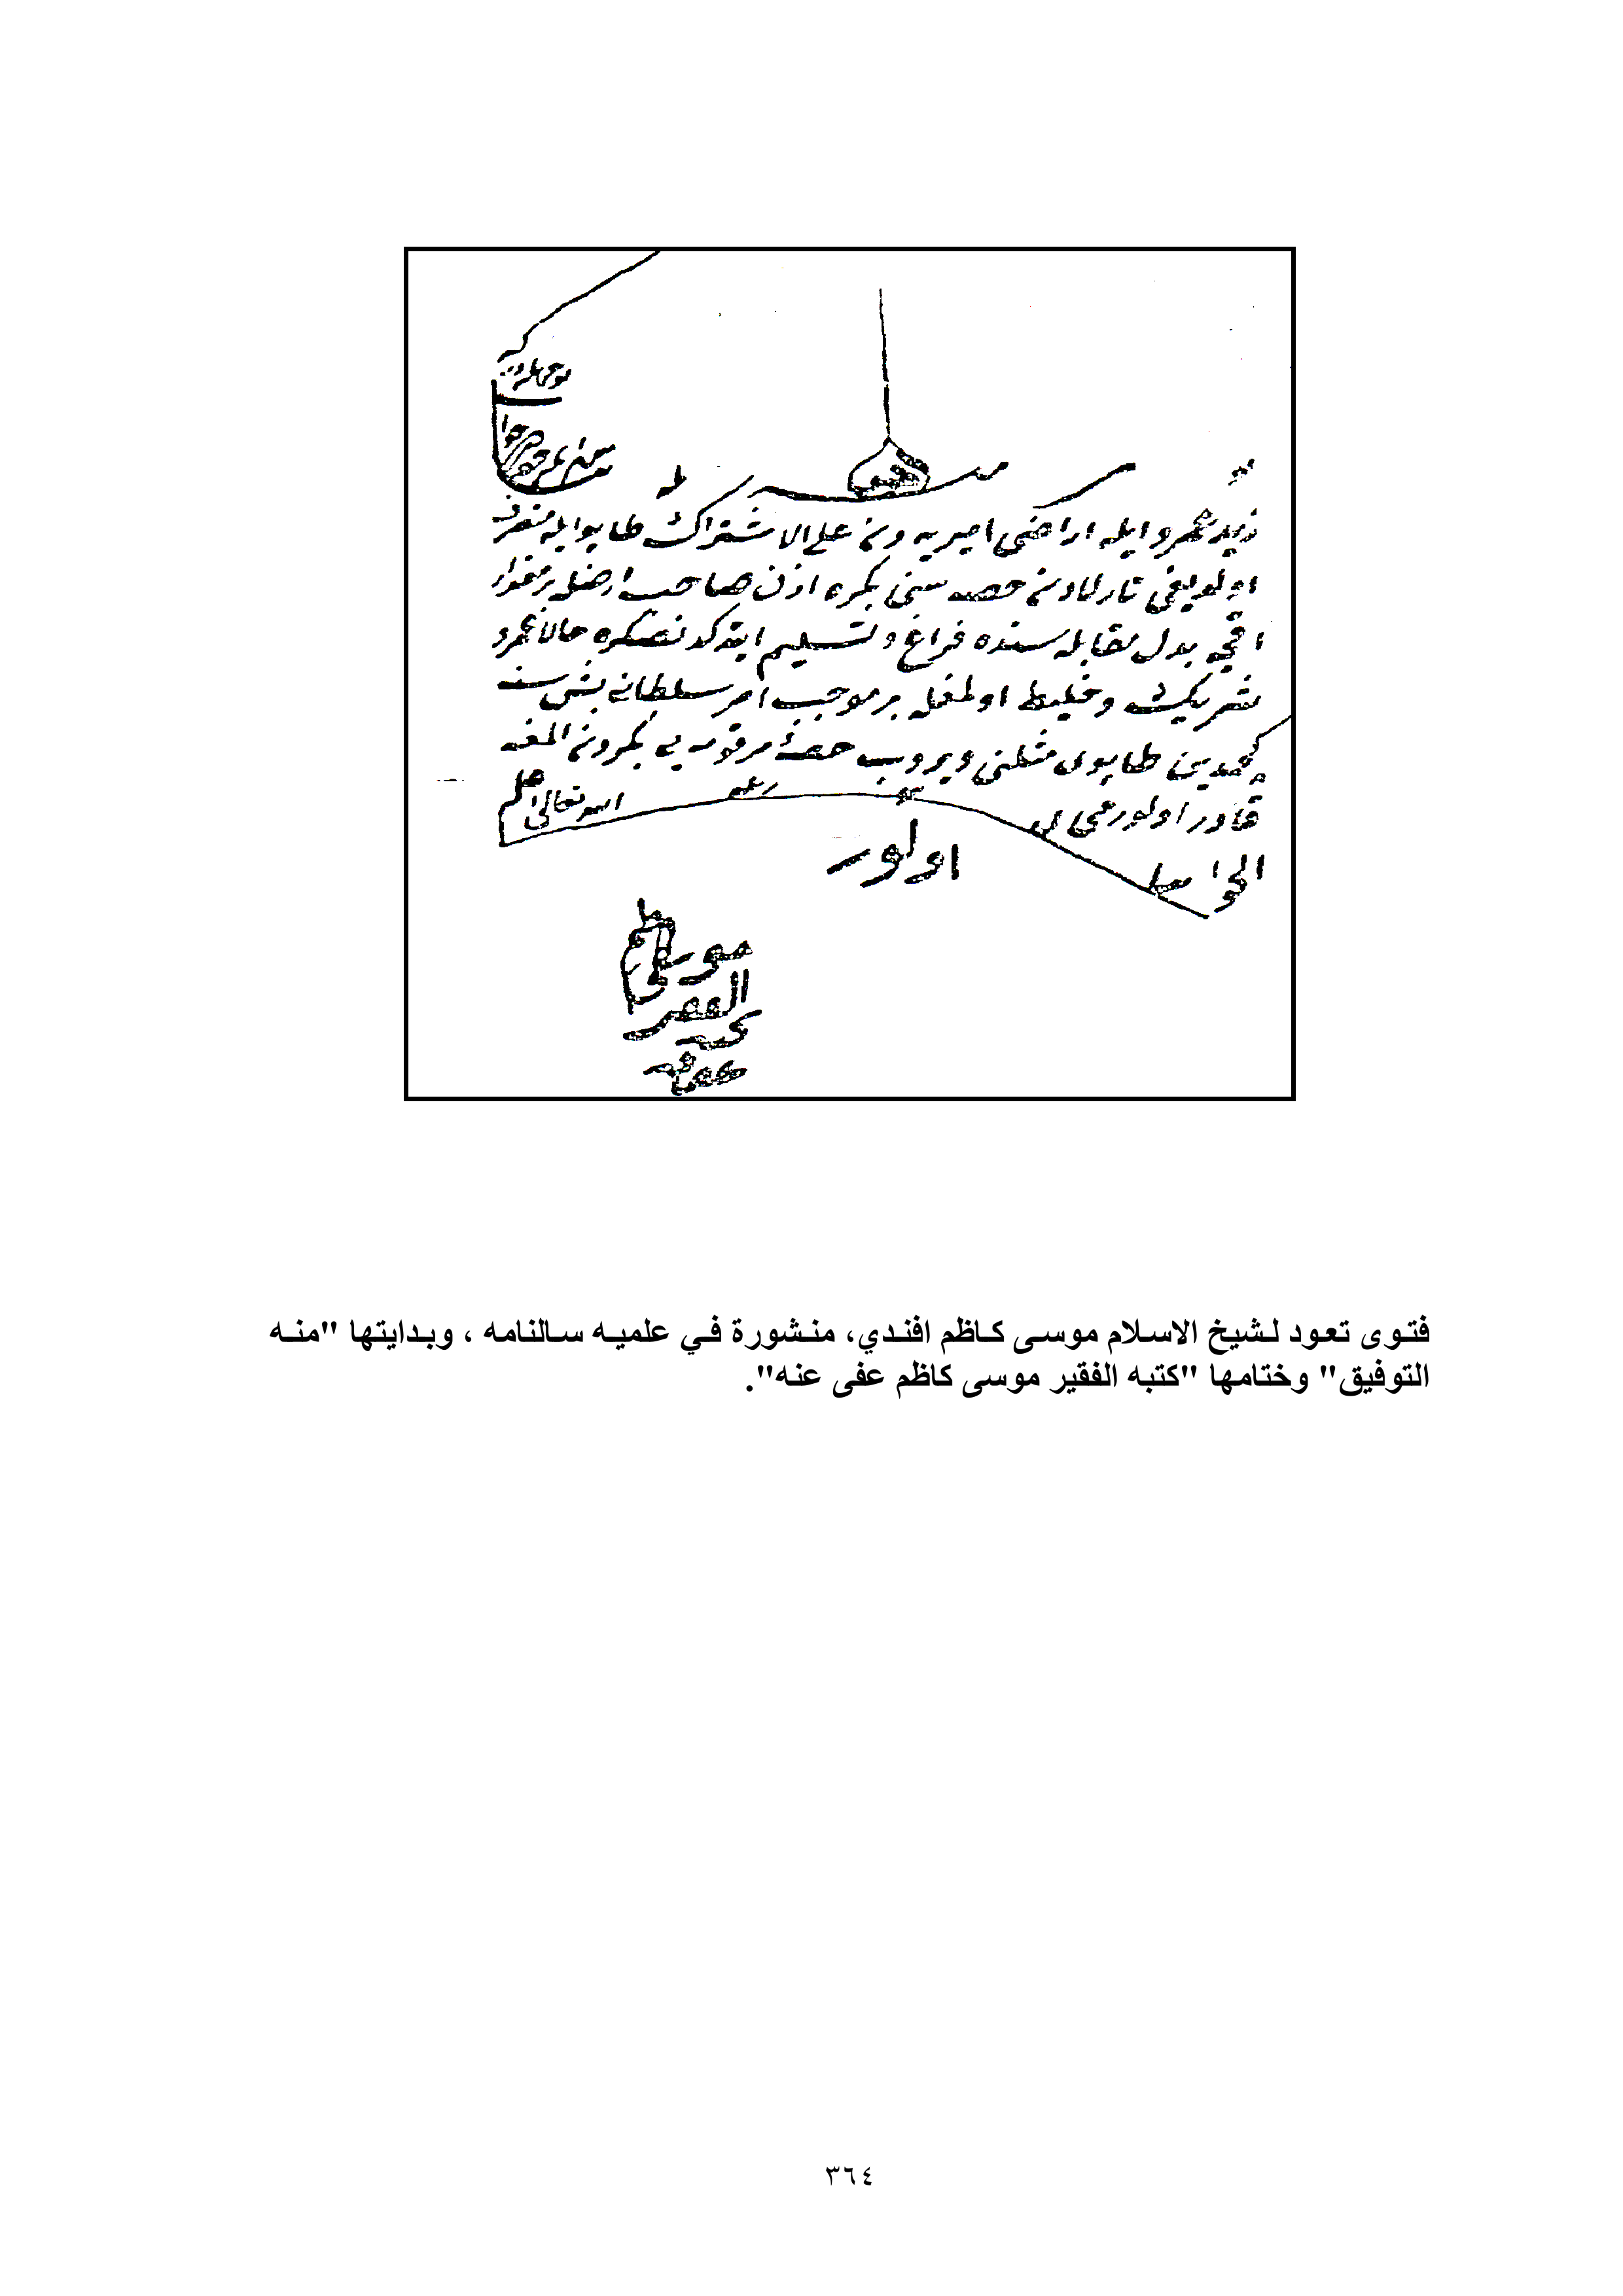 منه التوفيق
زيد عمرو ايله اراضى اميريه دن على الاشتراك طاپو ايله متصرف
اولديغى تارلادن حصه سنى بكره اذن صاحب ارضله بر مقدار
اقچه بدل مقابله سنده فراغ وتسليم ايتدكدنصكره حالا عمرو
شريك وخليط اولمغله بر موجب امر سلطانى بش سنه
كچمدين طاپوى مثلنى ويروب حصۀ مرقومه يى بكردن المغه
قادر اولورمى
الجواب
الله تعالى اعلم
اولور
كتبه الفقير موسى كاظم
عفى عنه
فتوى تعود لشيخ الاسلام موسى كاظم افندي، منشورة في علميه سالنامه ، وبدايتها "منه
التوفيق" وختامها "كتبه الفقير موسى كاظم عفى عنه".
٣٦٤